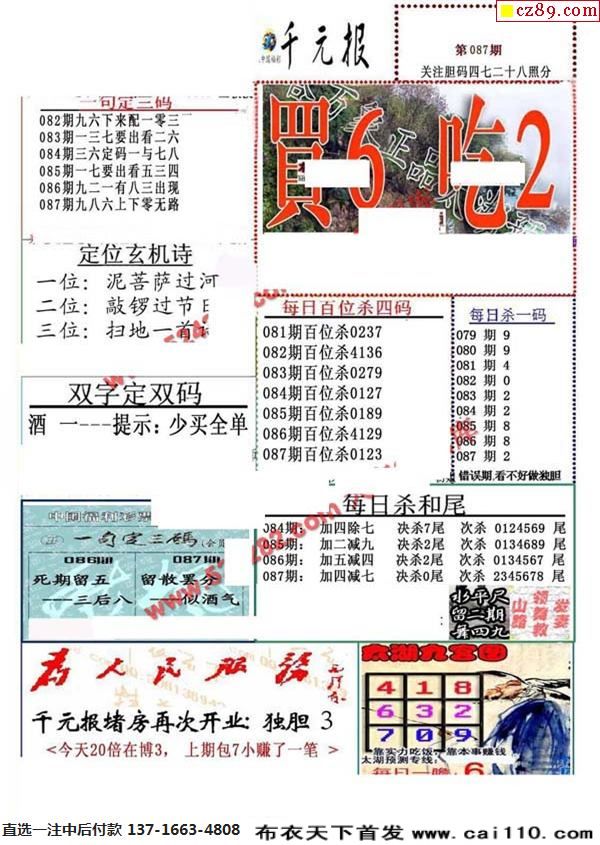 cz89.com
千元报
第087期
关注胆码四七二十八照分
一句定三码
082期九六下来配一零三
083期一三七要出看二六
084期三六定码一与七八
085期一七要出看五三四
086期九二一有八三出现
087期九八六上下零无路
買6 吃2
定位玄机诗
一位：泥菩萨过河
二位：敲锣过节日
三位：扫地一首
每日百位杀四码
081期百位杀0237
082期百位杀4136
083期百位杀0279
084期百位杀0127
085期百位杀0189
086期百位杀4129
087期百位杀0123
每日杀一码
079 期 9
080 期 9
081 期 4
082 期 0
083 期 2
084 期 2
085 期 8
086 期 8
087 期 2
错误期,看不好做独胆
双字定双码
酒 一---提示：少买全单
每日杀和尾
084期： 加四除七 决杀7尾 次杀 0124569 尾
085期： 加二减九 决杀2尾 次杀 0134689 尾
086期： 加五减四 决杀2尾 次杀 0134567 尾
087期： 加四减七 决杀0尾 次杀 2345678 尾
中国福利彩票
一句定三码
086期 087期
死期留五 留散罢分
---三后八 ---似酒气
水平尺
留二期
舞四九
山路
领舞教
发妻
为人民服务
千元报堵房再次开业：独胆 3
<今天20倍在博3， 上期包7小赚了一笔 >
太湖九宫图
4 1 8
6 3 2
7 0 9
靠实力吃饭，靠本事赚钱
太湖预测专线:
每日一胆 6
直选一注中后付款 137-1663-4808
布衣天下首发 www.cai110.com